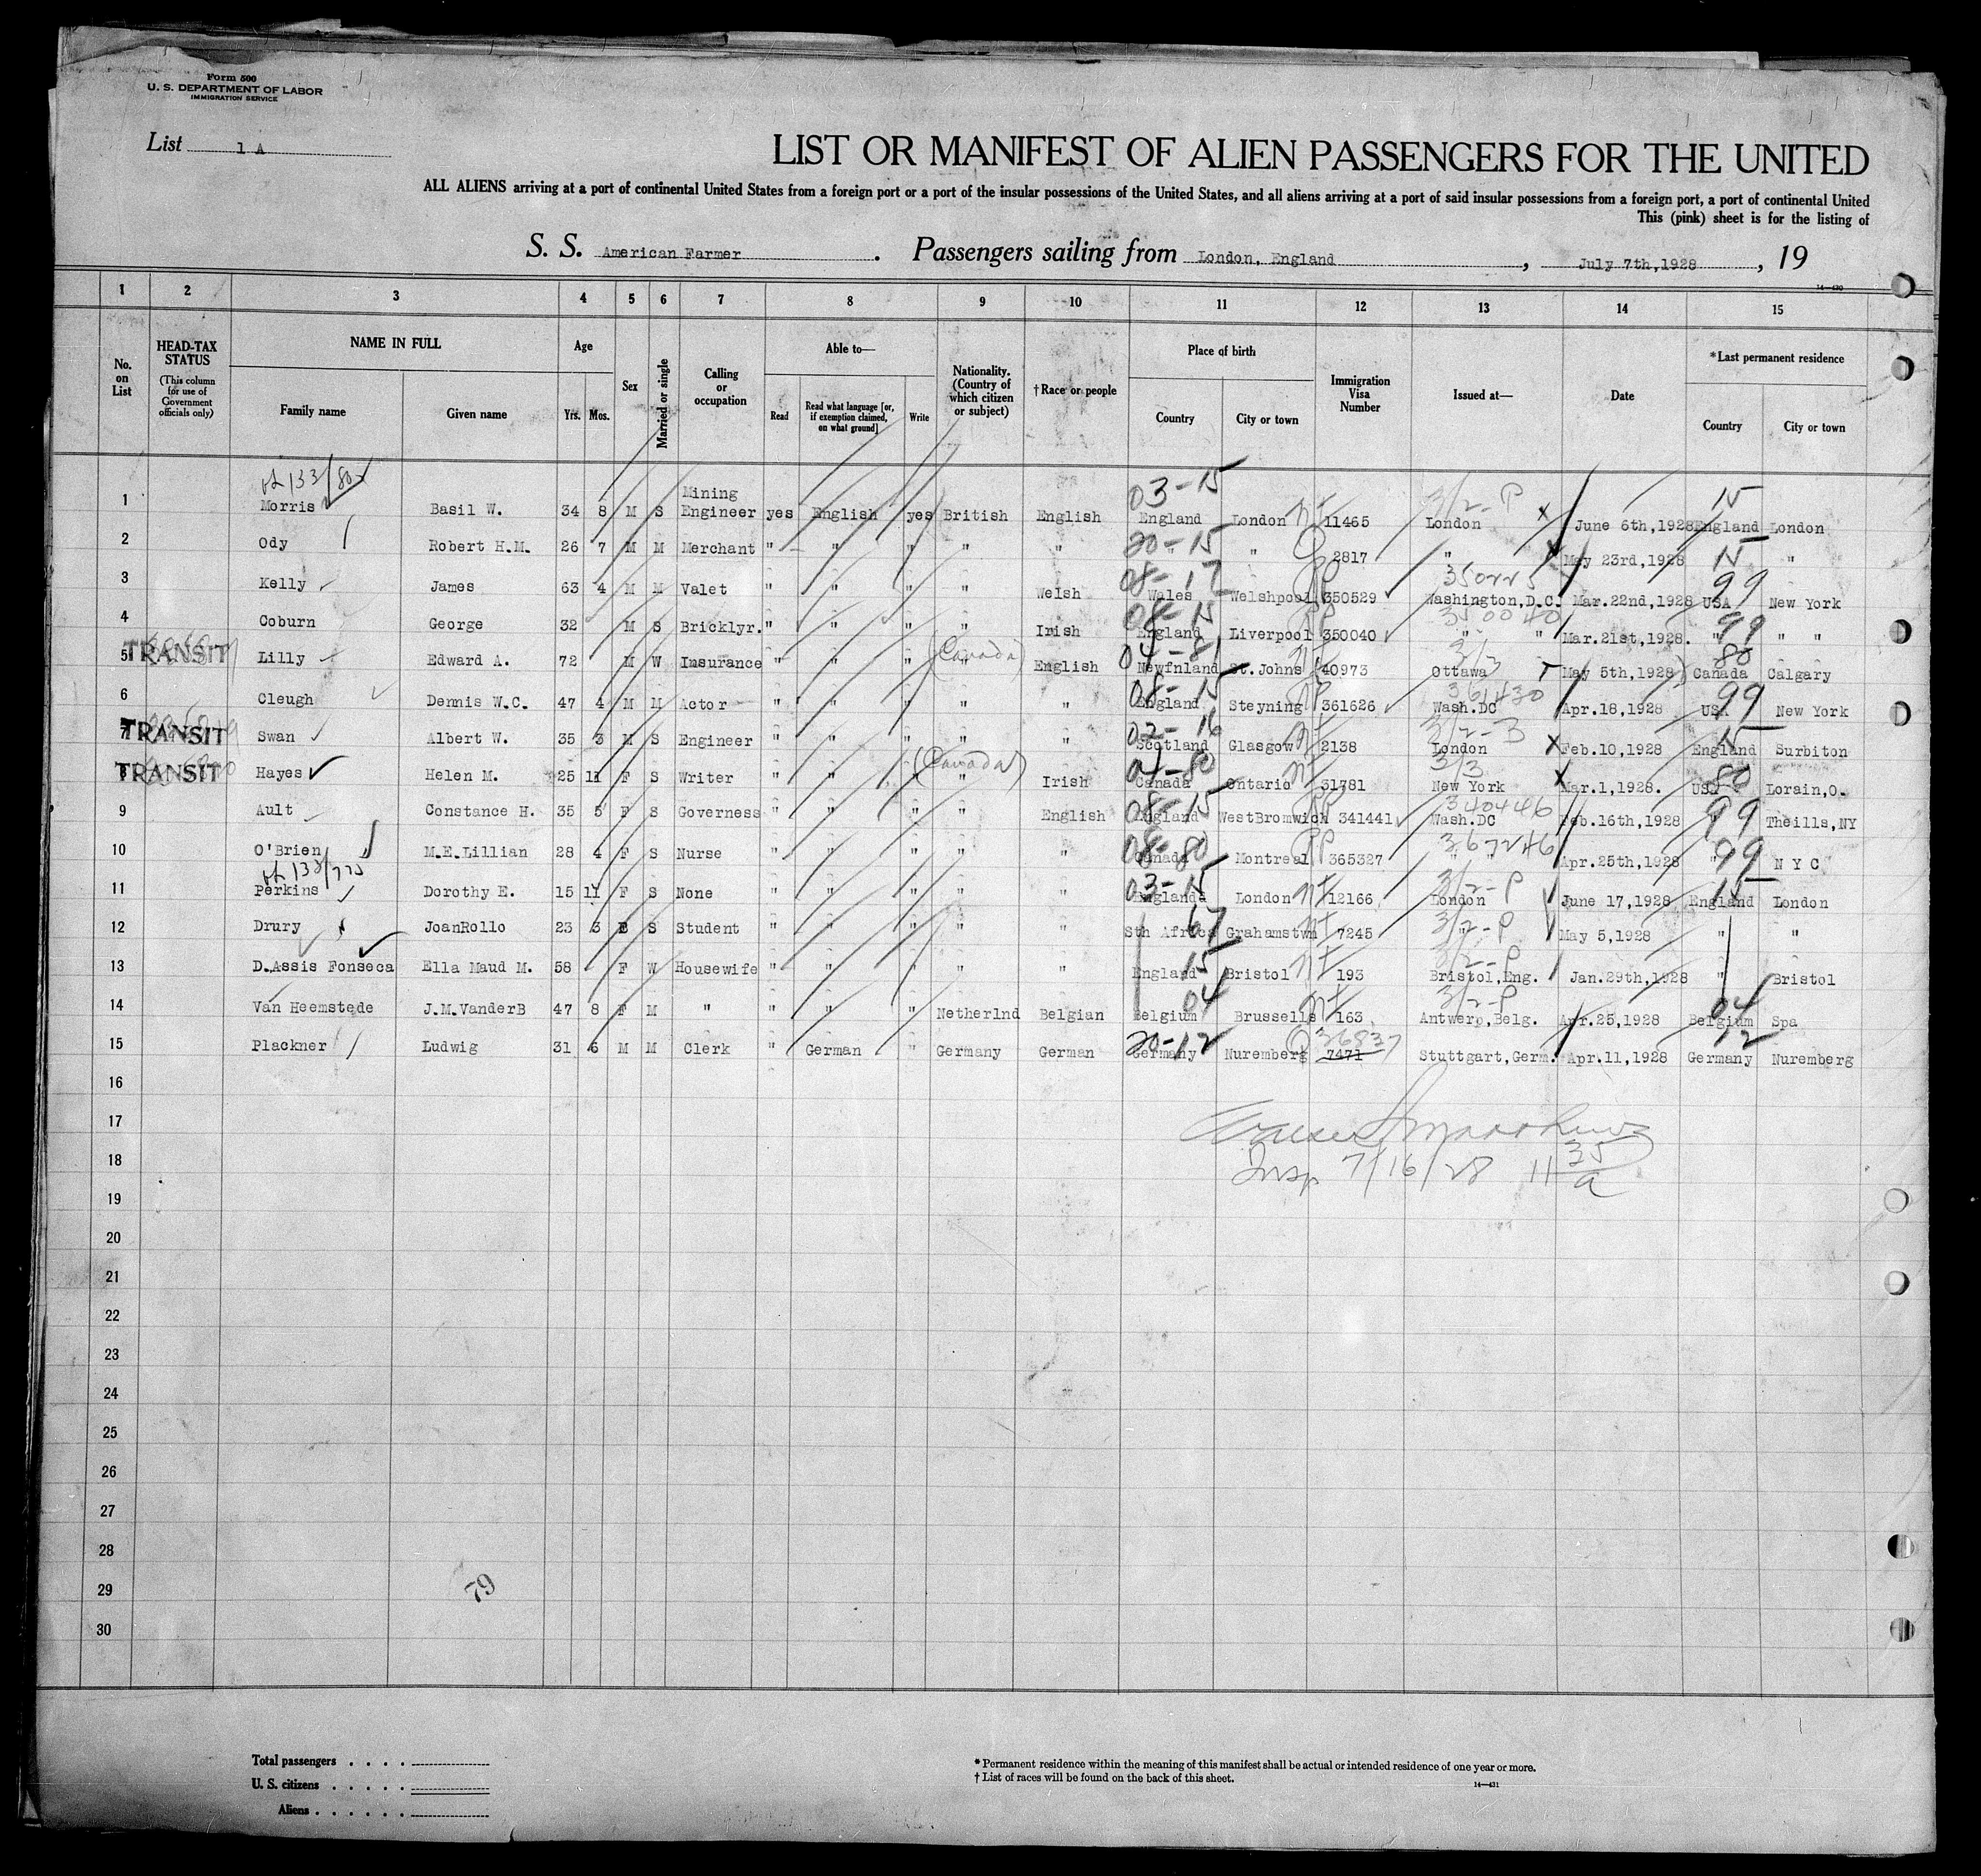 Form 500
U. S. DEPARTMENT OF LABOR
IMMIGRATION SERVICE
List 1 A
LIST OR MANIFEST OF ALIEN PASSENGERS FOR THE UNITED
ALL ALIENS arriving at a port of continental United States from a foreign port or a port of the insular possessions of the United States, and all aliens arriving at a port of said insular possessions from a foreign port, a port of continental United
This (pink) sheet is for the listing of
S. S. American Farmer. Passengers sailing from London, England, July 7th,1928, 19
14—430
1 2 3 4 5 6 7 8 9 10 11 12 13 14 15
No. on List
HEAD-TAX STATUS (This column for use of Government officials only)
NAME IN FULL
Family name Given name
Age
Yrs. Mos.
Sex
Married or single
Calling or occupation
Able to—
Read Read what language [or, if exemption claimed, on what ground] Write
Nationality. (Country of which citizen or subject)
†Race or people
Place of birth
Country City or town
Immigration Visa Number
Issued at—
Date
*Last permanent residence
Country City or town
03-15 3/2-P 15
1 Morris Basil W. 34 8 M S Mining Engineer yes English yes British English England London 11465 London June 6th,1928 England London
20-15 15
2 Ody Robert H.M. 26 7 M M Merchant " " " " " " 2817 " May 23rd,1928 "
08-17 PP 350225 99
3 Kelly James 63 4 M M Valet " " " " Welsh Wales Welshpool 350529 Washington,D.C. Mar.22nd,1928 USA New York
08-15 PP 350040 99
4 Coburn George 32 M S Bricklyr. " " " " Irish England Liverpool 350040 " " Mar.21st,1928. " " "
TRANSIT (Canada) 04-81 3/3 80
5 Lilly Edward A. 72 M W Insurance " " " " English Newfnland St.Johns 40973 Ottawa May 5th,1928 Canada Calgary
08-15 PP 361430 99
6 Cleugh Dennis W.C. 47 4 M M Actor " " " " " England Steyning 361626 Wash.DC Apr.18,1928 USA New York
TRANSIT 02-16 3/2-3 15
7 Swan Albert W. 35 3 M S Engineer " " " " " Scotland Glasgow 2138 London Feb.10,1928 England Surbiton
TRANSIT (Canada) 04-80 3/3 80
8 Hayes Helen M. 25 11 F S Writer " " " " Irish Canada Ontario 31781 New York Mar.1,1928. USA Lorain,O.
08-15 PP 340446 99
9 Ault Constance H. 35 5 F S Governess " " " " English England WestBromwich 341441 Wash.DC Feb.16th,1928 " Theills,NY
08-80 PP 367246 99
10 O'Brien M.E.Lillian 28 4 F S Nurse " " " " " Canada Montreal 365327 " " Apr.25th,1928 " N Y C
03-15 3/2-P 15
11 Perkins Dorothy E. 15 11 F S None " " " " " England London 12166 London June 17,1928 England London
67 3/2-P
12 Drury JoanRollo 23 3 S Student " " " " " Sth Africa Grahamstwn 7245 " May 5,1928 " "
15 3/2-P
13 D.Assis Fonseca Ella Maud M. 58 F W Housewife " " " " " England Bristol 193 Bristol,Eng. Jan.29th,1928 " Bristol
04 3/2-P 04
14 Van Heemstede J.M.VanderB 47 8 F M " " " " Netherlnd Belgian Belgium Brussells 163 Antwerp,Belg. Apr.25,1928 Belgium Spa
20-12 36837 12
15 Plackner Ludwig 31 6 M M Clerk " German " Germany German Germany Nuremberg 7471 Stuttgart,Germ. Apr.11,1928 Germany Nuremberg
16
17
18 Insp 7/16/28 11 35 a
19
20
21
22
23
24
25
26
27
28
29
30
79
Total passengers . . . .
U. S. citizens . . . . .
Aliens . . . . . .
* Permanent residence within the meaning of this manifest shall be actual or intended residence of one year or more.
† List of races will be found on the back of this sheet.
14—431